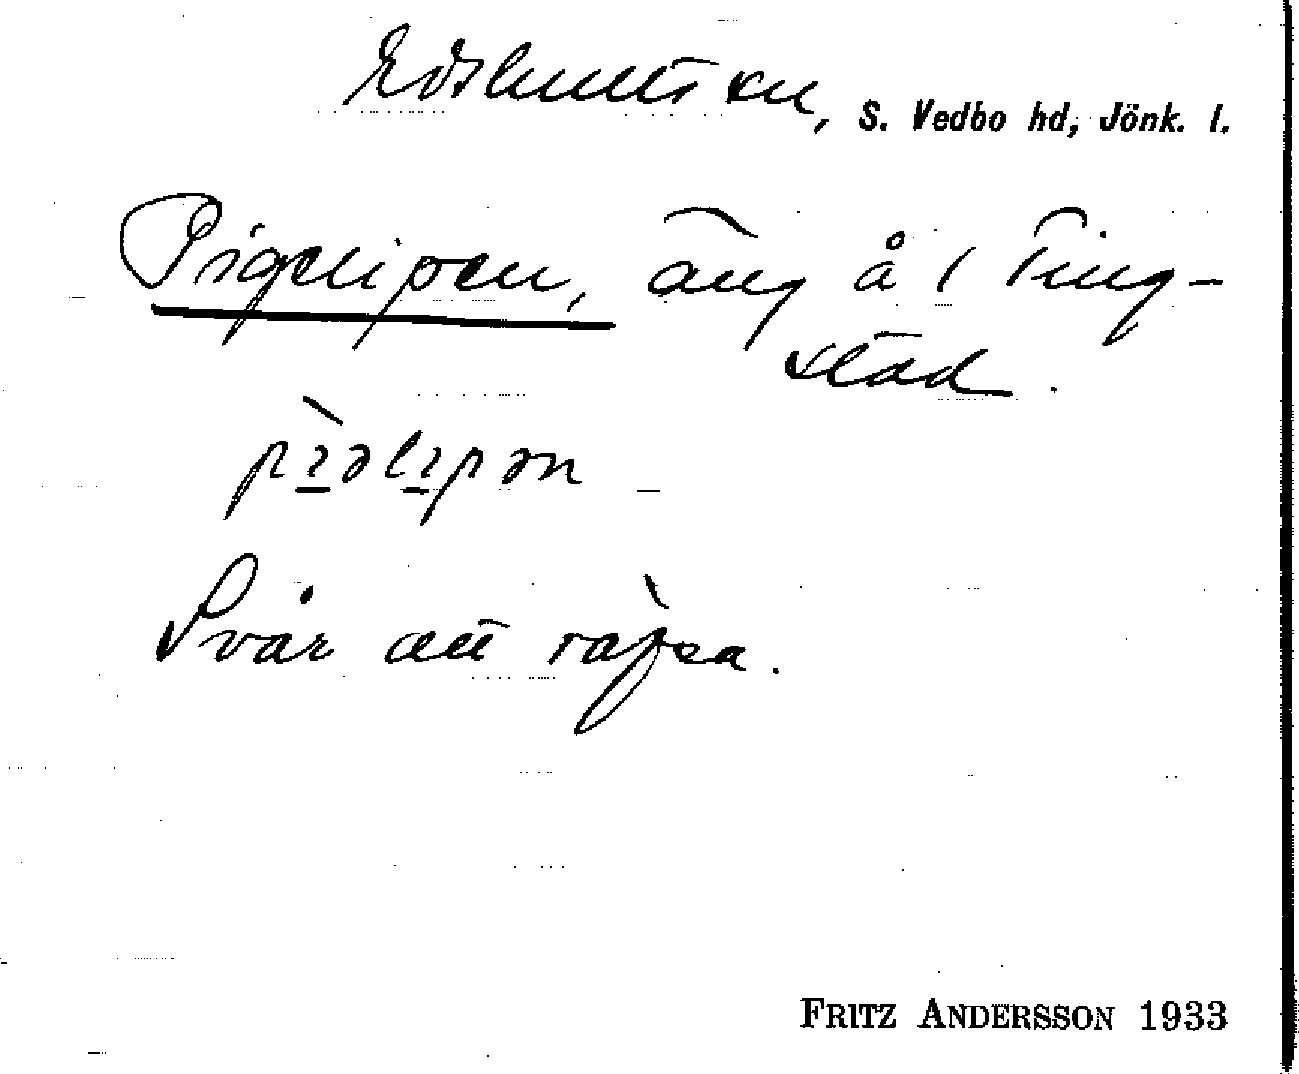 Edshults sn, S. Vedbo hd, Jönk. l.
Pigelipen, äng å 1 Ting-
stad.
pìəlıpən
Svår att räfsa.
FRITZ ANDERSSON 1933